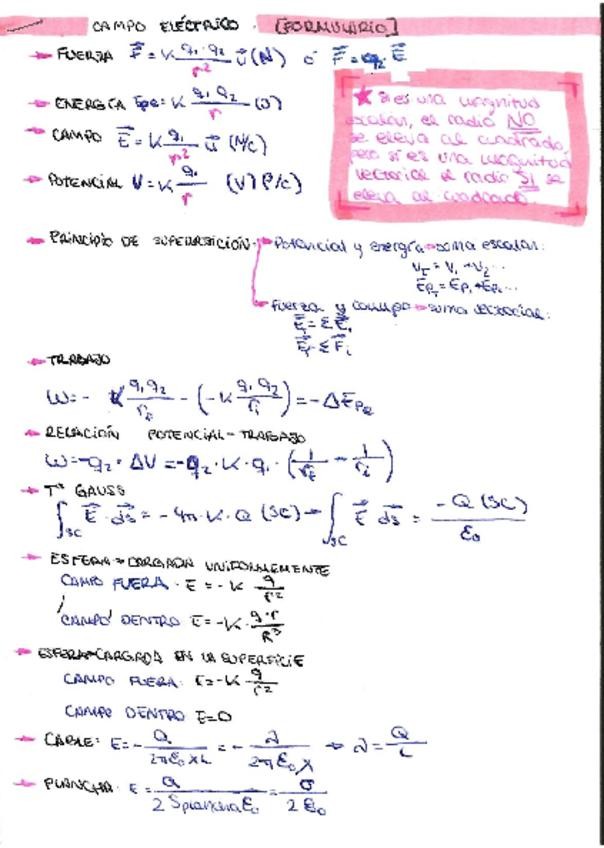 CAMPO ELÉCTRICO. [FORMULARIO]
FUERZA F⃗ = K q₁·q₂/r² u⃗ (N) ó F⃗ = q₂·E⃗
ENERGÍA Epe = K q₁q₂/r (J)
CAMPO E⃗ = K q₁/r² u⃗ (N/C)
POTENCIAL V = K q₁/r (V) (J/C)
★ Si es una magnitud
escalar, el radio NO
se eleva al cuadrado,
pero si es una magnitud
vectorial el radio SI se
eleva al cuadrado.
PRINCIPIO DE SUPERPOSICIÓN Potencial y energía → suma escalar:
V_T = V₁ + V₂...
Ep_T = Ep₁ + Ep₂...
Fuerza y campo → suma vectorial:
E⃗ = Σ E⃗ᵢ
Σ F⃗ᵢ
TRABAJO
W = - K q₁q₂/r - (-K q₁q₂/rᵢ) = -ΔEpe
RELACIÓN POTENCIAL-TRABAJO
W = -q₂·ΔV = -q₂·K·q₁·(1/r_f - 1/rᵢ)
Tª GAUSS
∫sc E⃗·ds⃗ = -4π·K·Q (SC) → ∫sc E⃗ ds⃗ = -Q (SC)/ε₀
ESFERA → CARGADA UNIFORMEMENTE
CAMPO FUERA · E = -K q/r²
CAMPO DENTRO E = -K · q·r/R³
ESFERA → CARGADA EN LA SUPERFICIE
CAMPO FUERA: E = -K q/r²
CAMPO DENTRO E=0
CABLE: E = - Q/2πε₀XL = - λ/2πε₀X → λ = Q/L
PLANCHA: E = Q/2 S plancha ε₀ = σ/2ε₀